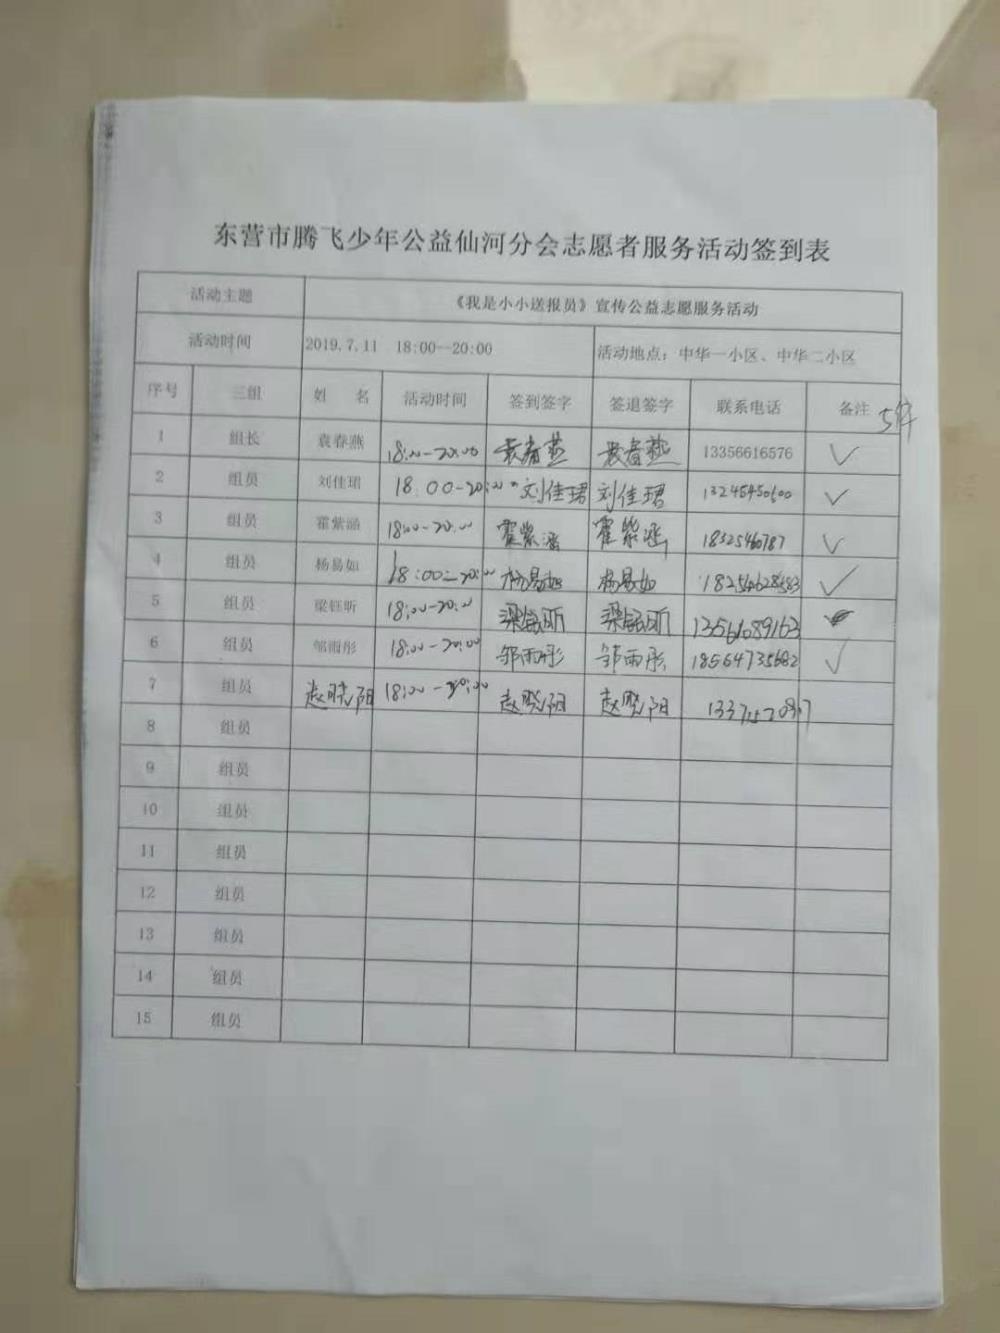 东营市腾飞少年公益仙河分会志愿者服务活动签到表
活动主题 《我是小小送报员》宣传公益志愿服务活动
活动时间 2019.7.11 18:00—20:00 活动地点：中华一小区、中华二小区
序号 三组 姓 名 活动时间 签到签字 签退签字 联系电话 备注
1 组长 袁春燕 18:00-20:00 袁春燕 袁春燕 13356616576 ✓
2 组员 刘佳珺 18:00-20:00 刘佳珺 刘佳珺 ✓
3 组员 霍紫涵 18:00-20:00 霍紫涵 霍紫涵 ✓
4 组员 杨易如 18:00-20:00 杨易如 杨易如 ✓
5 组员 梁钰昕 18:00-20:00 梁钰昕 梁钰昕 13561089163
6 组员 邹雨彤 18:00-20:00 邹雨彤 邹雨彤 18564735682 ✓
7 组员 赵晓阳 18:00-20:00 赵晓阳 赵晓阳
8 组员
9 组员
10 组员
11 组员
12 组员
13 组员
14 组员
15 组员